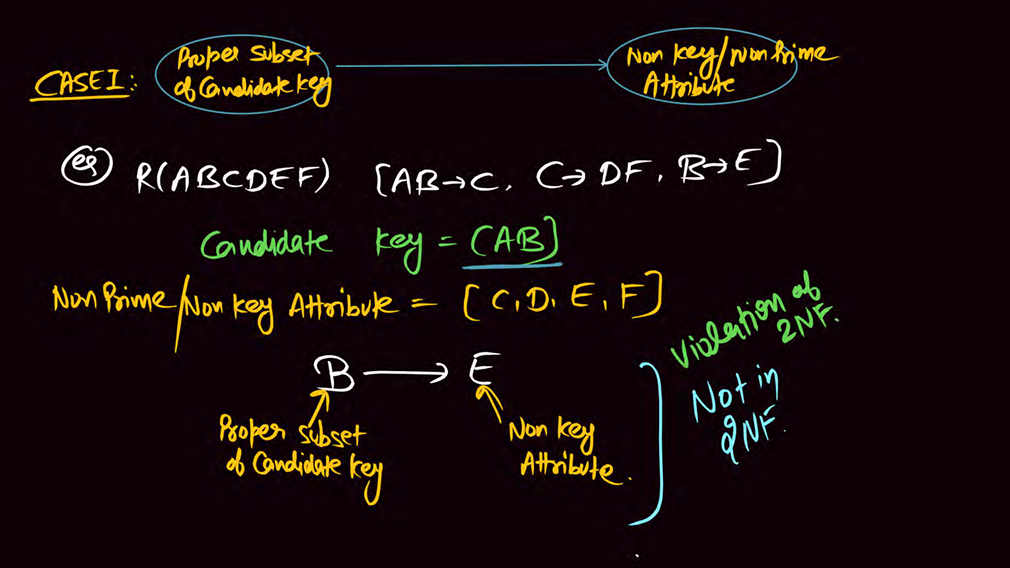 CASE I:
Proper Subset
of Candidate key
Non key/Non Prime
Attribute
eg R(ABCDEF) [AB→C, C→DF, B→E]
Candidate key = (AB]
Non Prime/Non key Attribute = [C, D, E, F]
B → E
Proper subset
of Candidate key
Non key
Attribute.
Violation of
2NF.
Not in
2NF.